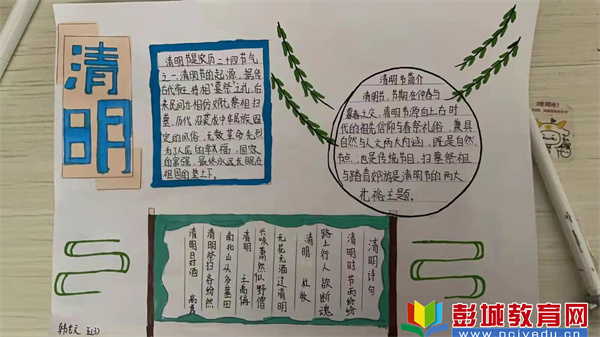 清明
清明节是农历二十四节气
之一,清明节的起源,据传
古代帝王将相"墓祭"之礼,后
来民间亦相仿效,此日祭祖扫
墓,历代沿袭成中华民族固
定的风俗。无数革命先烈
为了人民的幸福,国家
的富强,最终永远长眠在
祖国的土上。
清明节简介
清明节,节期在仲春与
暮春之交。清明节源自上古时
代的祖先信仰与春祭礼俗,兼具
自然与人文两大内涵,既是自然
节点,也是传统节日,扫墓祭祖
与踏青郊游是清明节的两大
礼俗主题。
清明诗句
清明时节雨纷纷
路上行人欲断魂
清明 杜牧
无花无酒过清明
兴味萧然似野僧
清明 王禹偁
南北山头多墓田
清明祭扫各纷然
清明日对酒 高翥
彭城教育网
www.pcjyw.com